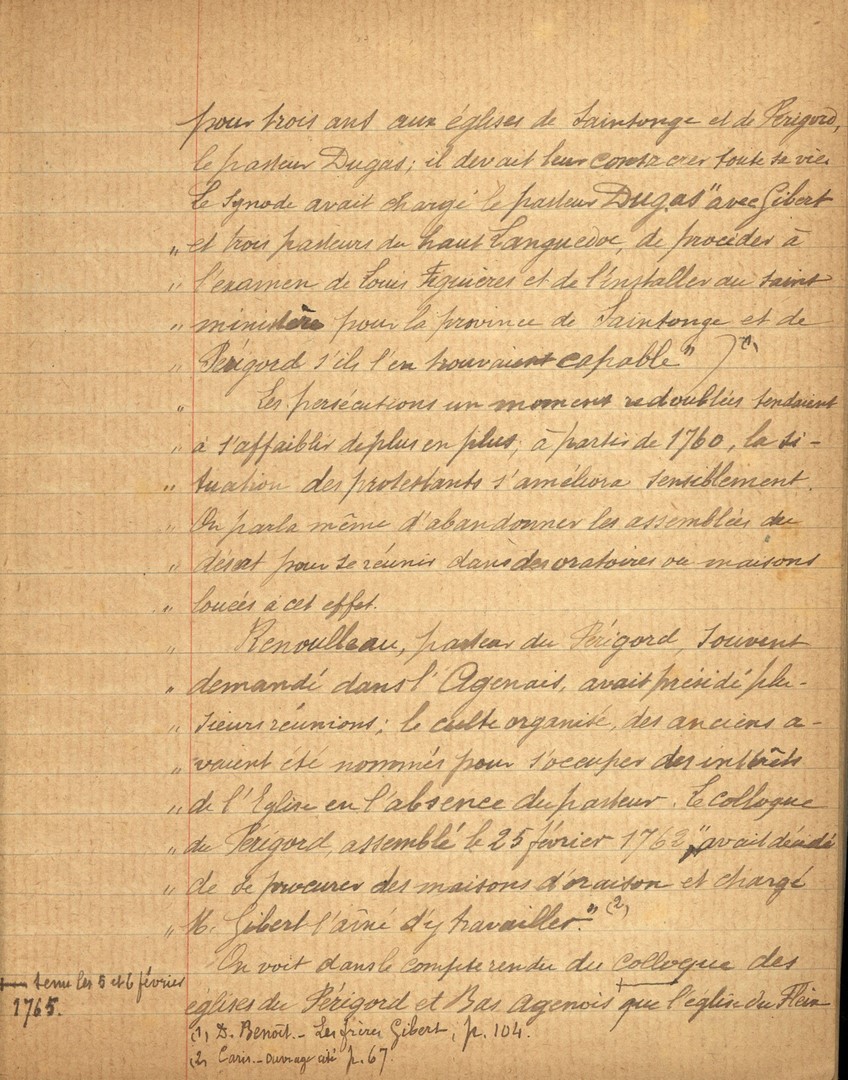 pour trois ans aux églises de Saintonge et de Périgord,
le pasteur Dugas; il devait leur consacrer toute sa vie.
Le Synode avait chargé le pasteur Dugas " avec Gibert
" et trois pasteurs du haut Languedoc, de procéder à
" l'examen de Louis Figuières et de l'installer au saint
" ministère pour la province de Saintonge et de
" Périgord s'ils l'en trouvaient capable" (1)
" Les persécutions un moment redoublées tendaient
" à s'affaiblir de plus en plus; à partir de 1760, la si-
" tuation des protestants s'améliora sensiblement.
" On parla même d'abandonner les assemblées du
" désert pour se réunir dans des oratoires ou maisons
" louées à cet effet.
" Renoulleau, pasteur du Périgord, souvent
" demandé dans l'Agenais, avait présidé plu-
" sieurs réunions; le culte organisé, des anciens a-
" vaient été nommés pour s'occuper des intérêts
" de l'Eglise en l'absence du pasteur. Le colloque
" du Périgord, assemblé le 25 février 1762 " avait décidé
" de se procurer des maisons d'oraison et chargé
" M. Gibert l'aîné d'y travailler." (2)
On voit dans le compte rendu du colloque des
tenu les 5 et 6 février
1765.
églises du Périgord et Bas Agenois que l'église du Fleix
(1) D. Benoît. - Les frères Gibert, p. 104.
(2) Caris. - ouvrage cité p. 67.